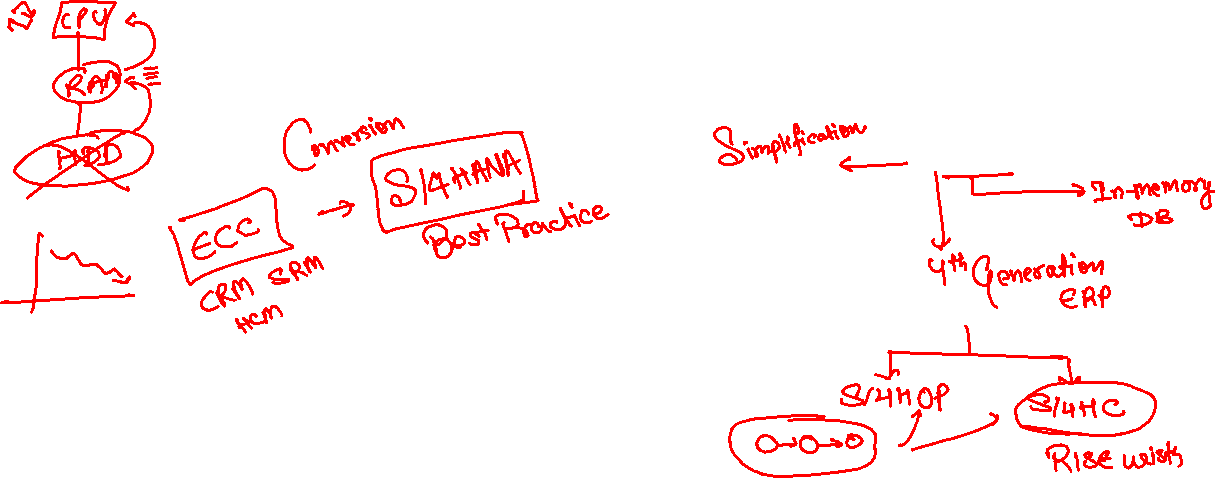 CPU
RAM
HDD
Conversion
S/4HANA
Best Practice
ECC
CRM SRM
HCM
Simplification
In-memory
DB
4th Generation
ERP
S/4H OP
S/4HC
RISE with